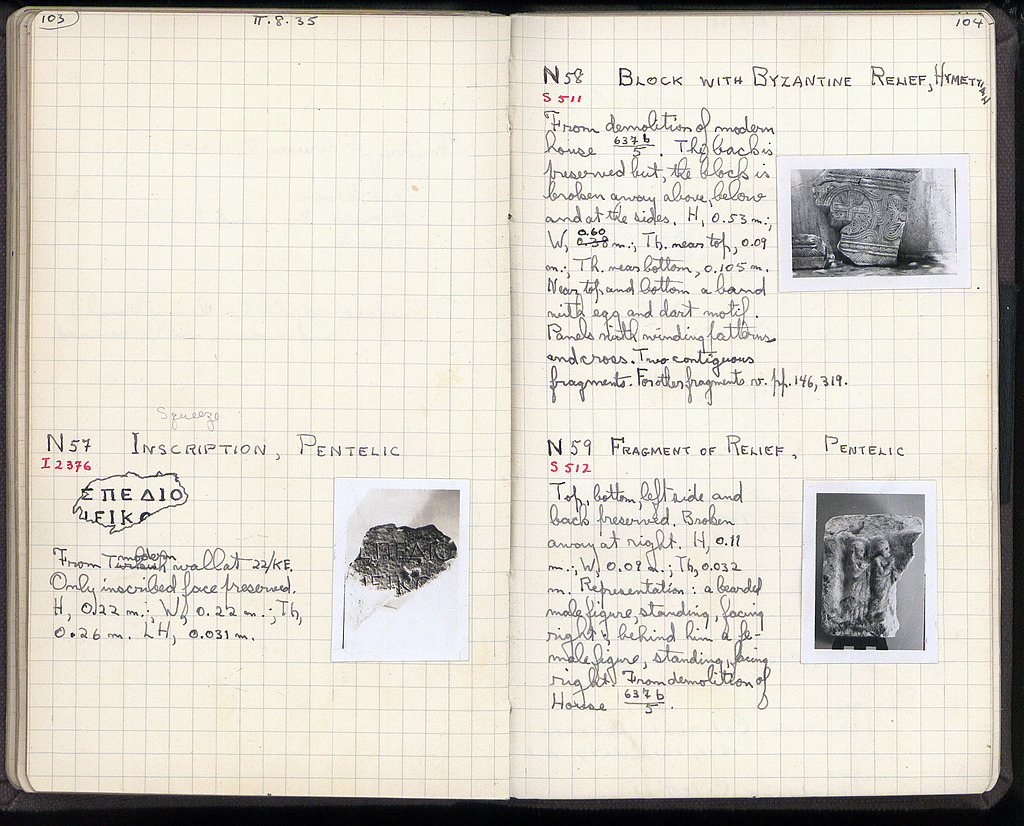 103
II.8.35
Squeeze
N57 INSCRIPTION, PENTELIC
I 2376
ΣΠΕΔΙΟ
ΕΙΚΟ
From modern
Turkish wall at 22/KE.
Only inscribed face preserved.
H, 0.22 m.; W, 0.22 m.; Th,
0.26 m. LH, 0.031 m.
104
N58 BLOCK WITH BYZANTINE RELIEF, HYMETTIAN
S 511
From demolition of modern
house 637b/5. The back is
preserved but, the block is
broken away above, below
and at the sides. H, 0.53 m.;
W, 0.60 0.38 m.; Th. near top, 0.09
m.; Th. near bottom, 0.105 m.
Near top and bottom a band
with egg and dart motif.
Panels with winding patterns
and cross. Two contiguous
fragments. For other fragments v. pp. 146, 319.
N59 FRAGMENT OF RELIEF, PENTELIC
S 512
Top, bottom, left side and
back preserved. Broken
away at right. H, 0.11
m.; W, 0.09 m.; Th, 0.032
m. Representation: a bearded
male figure, standing, facing
right; behind him a fe-
male figure, standing, facing
right. From demolition of
House 637b/5.